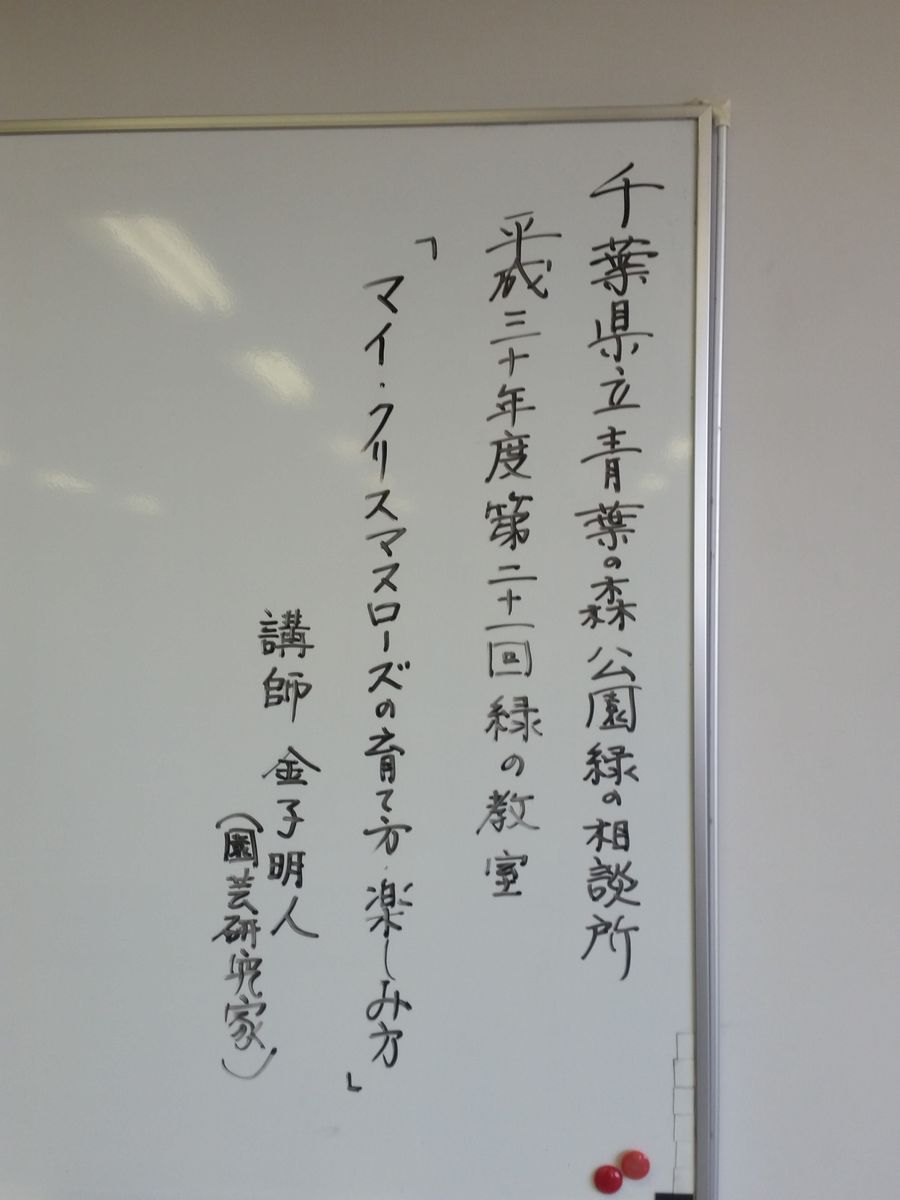 千葉県立青葉の森公園緑の相談所
平成三十年度第二十一回緑の教室
「マイ・クリスマスローズの育て方・楽しみ方」
講師 金子明人
(園芸研究家)